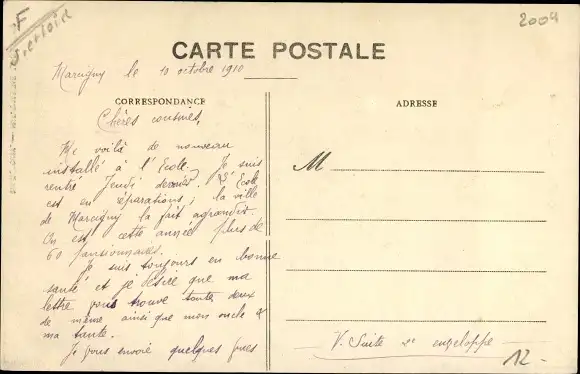 F
2009
CARTE POSTALE
Marcigny le 10 octobre 1910
CORRESPONDANCE
Chères cousines,
Me voilà de nouveau
installé à l'Ecole. Je suis
rentré Jeudi dernier. L'Ecole
est en réparations; la ville
de Marcigny la fait agrandir.
On est cette année plus de
60 pensionnaires.
Je suis toujours en bonne
santé et je désire que ma
lettre vous trouve toutes deux
de même ainsi que mon oncle &
ma tante.
Je vous envoie quelques vues
ADRESSE
M
V. Suite enveloppe
12-